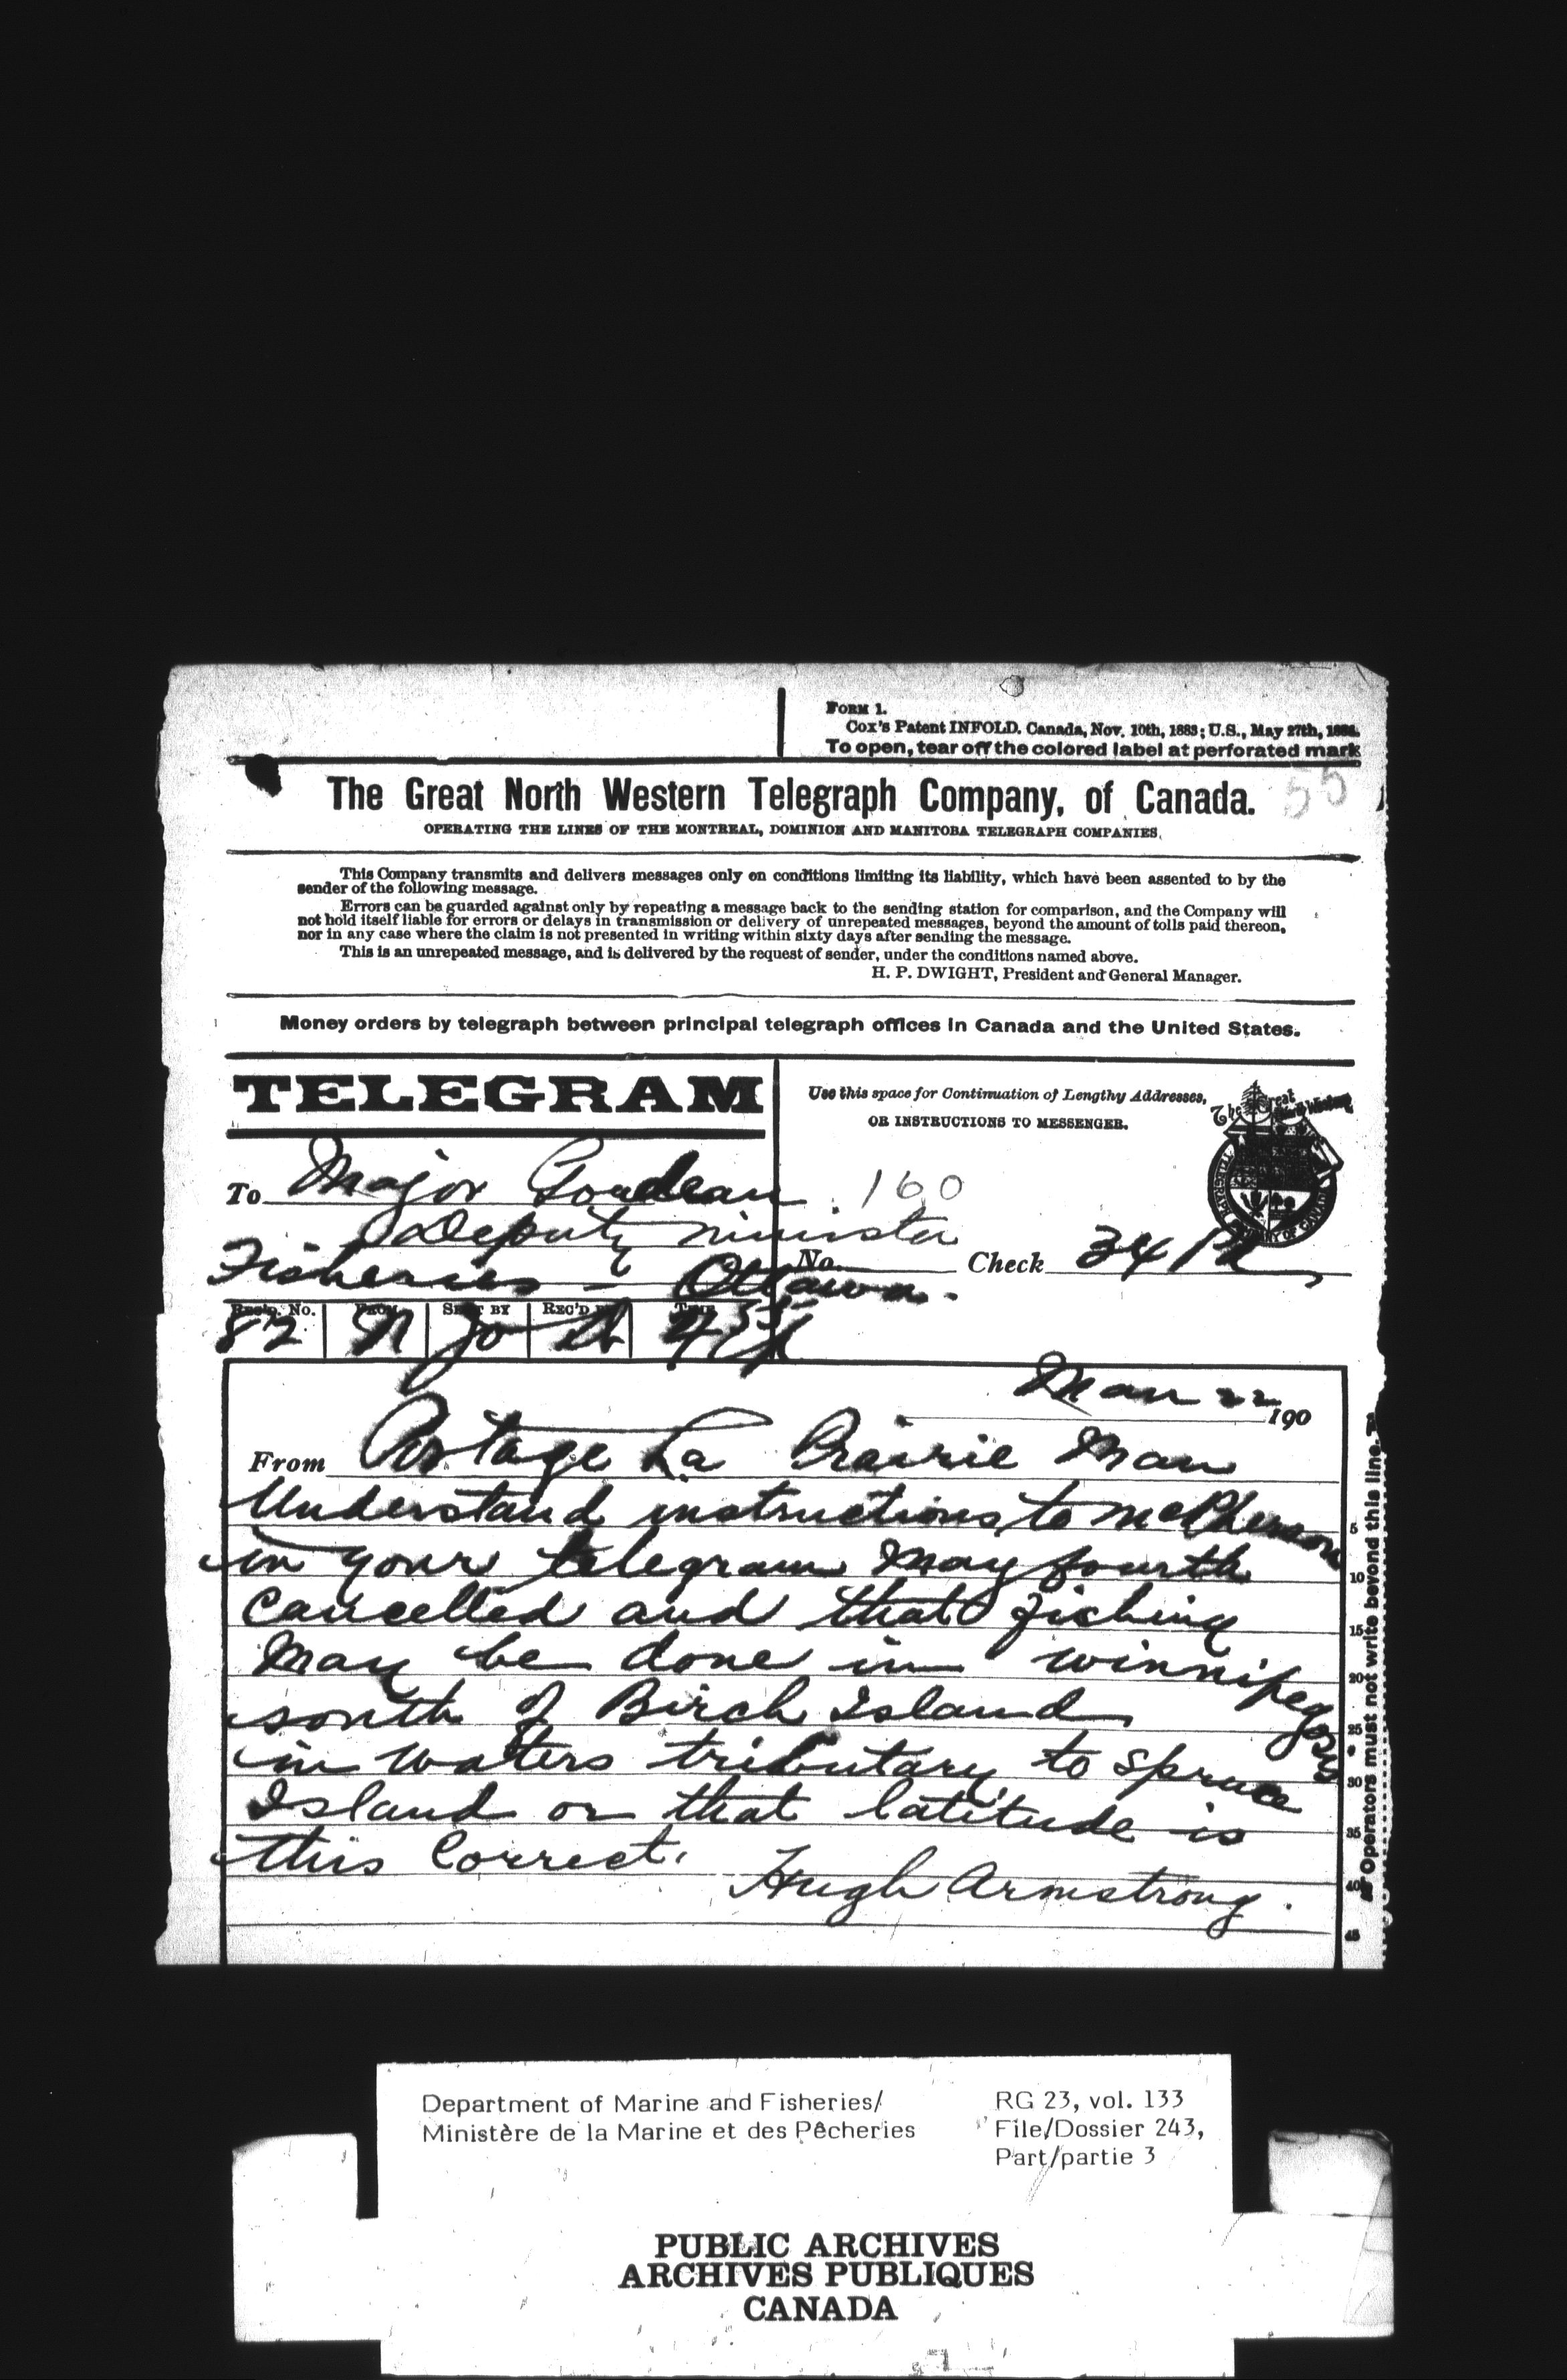 FORM 1.
Cox's Patent INFOLD. Canada, Nov. 10th, 1883; U.S., May 27th, 1884.
To open, tear off the colored label at perforated mark
55
The Great North Western Telegraph Company, of Canada.
OPERATING THE LINES OF THE MONTREAL, DOMINION AND MANITOBA TELEGRAPH COMPANIES.
This Company transmits and delivers messages only on conditions limiting its liability, which have been assented to by the
sender of the following message.
Errors can be guarded against only by repeating a message back to the sending station for comparison, and the Company will
not hold itself liable for errors or delays in transmission or delivery of unrepeated messages, beyond the amount of tolls paid thereon,
nor in any case where the claim is not presented in writing within sixty days after sending the message.
This is an unrepeated message, and is delivered by the request of sender, under the conditions named above.
H. P. DWIGHT, President and General Manager.
Money orders by telegraph between principal telegraph offices in Canada and the United States.
TELEGRAM
Use this space for Continuation of Lengthy Addresses,
OR INSTRUCTIONS TO MESSENGER.
The Great North Western
To Major Gourdeau 160
Deputy minister
Fisheries - Ottawa.
No. Check 34
Rec'd. No. FROM SENT BY REC'D BY TIME
82 N Jo
22 190
From Portage La Prairie Man
Understand instructions to McPherson
in your telegram May fourth
Cancelled and that fishing
May be done in winnipegosis
south of Birch Island
in waters tributary to Spruce
Island or that latitude is
this Correct.
Hugh Armstrong.
5
10
15
20
25
30
35
40
45
Operators must not write beyond this line.
Department of Marine and Fisheries/ RG 23, vol. 133
Ministère de la Marine et des Pêcheries File/Dossier 243,
Part/partie 3
PUBLIC ARCHIVES
ARCHIVES PUBLIQUES
CANADA